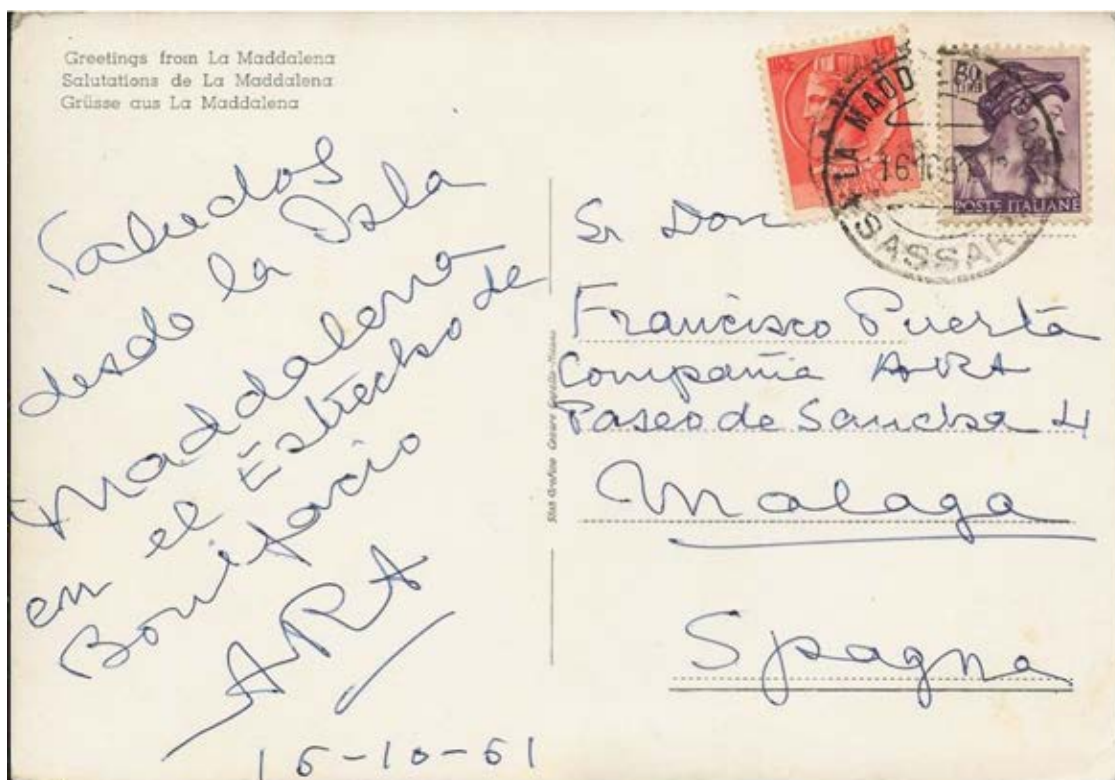 Greetings from La Maddalena
Salutations de La Maddalena
Grüsse aus La Maddalena
Saludos
desde la Isla
Maddalena
en el Estrecho de
Bonifacio
ARA
16-10-61
LIRE
LA MADD
16.10.61
SASSAR
LIRE
POSTE ITALIANE
Sr Don
Francisco Puerta
Compañia ARA
Paseo de Sancha 4
Malaga
Spagna
Milano